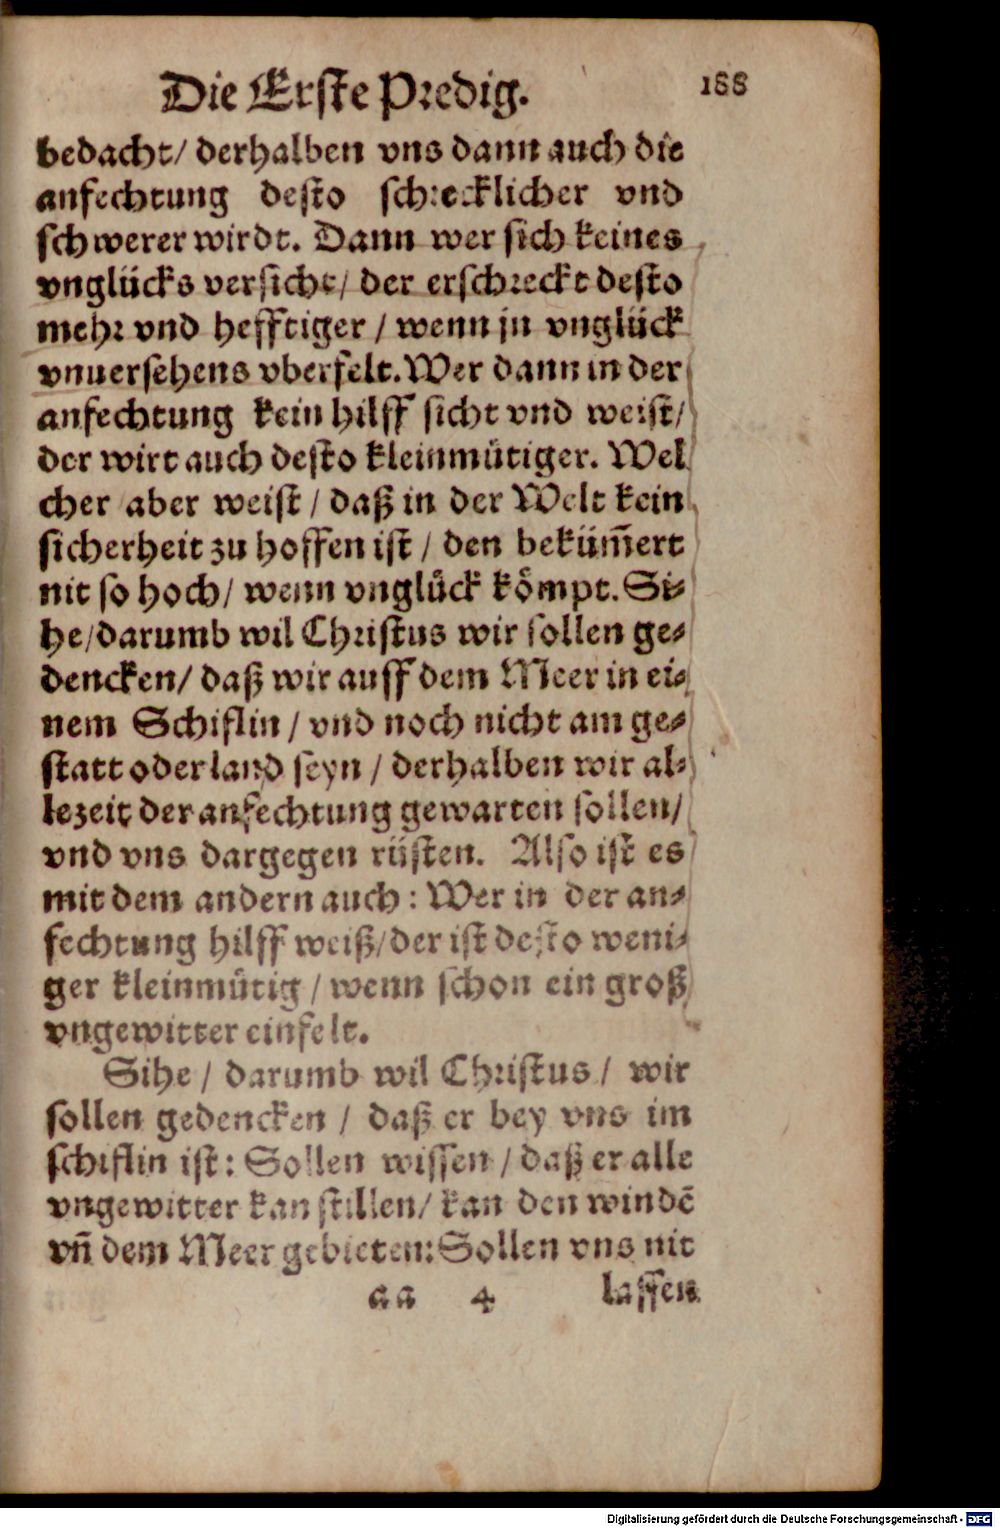 Die Erste Predig. 188
bedacht/ derhalben vns dann auch die
anfechtung desto schrecklicher vnd
schwerer wirdt. Dann wer sich keines
vnglücks versicht/ der erschreckt desto
mehr vnd hefftiger / wenn jn vnglück
vnuersehens vberfelt. Wer dann in der
anfechtung kein hilff sicht vnd weist/
der wirt auch desto kleinmütiger. Wel
cher aber weist / daß in der Welt kein
sicherheit zu hoffen ist / den beküm̃ert
nit so hoch/ wenn vnglück kömpt. Si-
he/darumb wil Christus wir sollen ge-
dencken/ daß wir auff dem Meer in ei-
nem Schiflin / vnd noch nicht am ge-
statt oder land seyn / derhalben wir al-
lezeit der anfechtung gewarten sollen/
vnd vns dargegen rüsten. Also ist es
mit dem andern auch : Wer in der an-
fechtung hilff weiß/der ist desto weni-
ger kleinmütig / wenn schon ein groß
vngewitter einfelt.
Sihe / darumb wil Christus / wir
sollen gedencken / daß er bey vns im
schiflin ist: Sollen wissen / daß er alle
vngewitter kan stillen/ kan den windẽ
vñ dem Meer gebieten: Sollen vns nit
aa 4 lassen
Digitalisierung gefördert durch die Deutsche Forschungsgemeinschaft - DFG